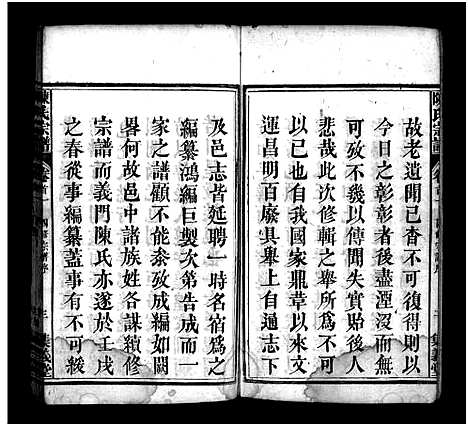 故老遺聞已杳不可復得則
今之彰彰者今後日盡湮沒而無
可攷不幾以傳聞失實貽後
悲哉此次修輯之舉所為不可
以已也方我國家鼎章以來
運昌明百廢具舉上自通志下
及邑志皆延聘一時名宿為之
編纂鴻編巨製次第告成而一
家之譜顧不能叅攷成編如闕
畧何故邑中諸族姓各謀續修
宗譜而義門陳氏亦遂於壬戌
之春從事編纂蓋事有不可
陳氏宗譜
卷首一
四修宗譜序
三
集義堂